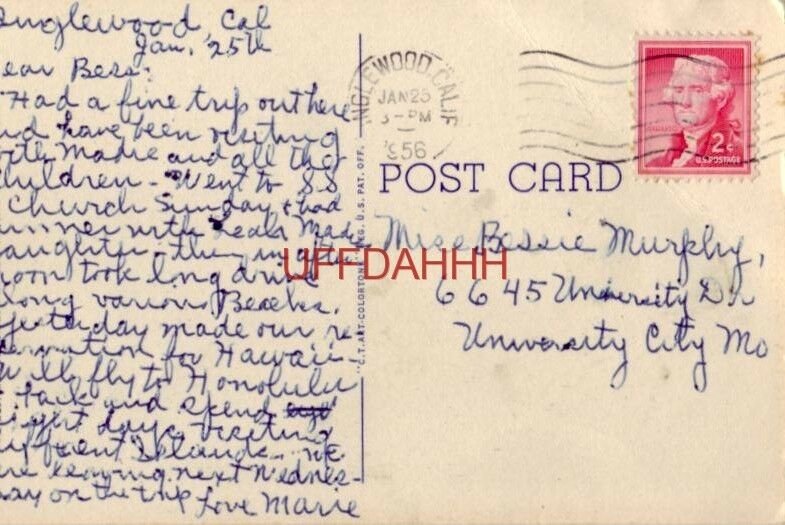 Inglewood, Cal
Jan, 25th
ear Bess:
Had a fine trip out here
nd have been visiting
ith Madie and all the
children - Went to SS
Church Sunday & had
inner with Madi
aughter - then in after
noon took long drive
long various Beaches.
yesterday made our re
servation for Hawaii -
ll fly to Honolulu
& back and spend
eight days visiting
different Islands - we
re leaving next Wednes-
ay on the trip Love Marie
"C.T. ART-COLORTONE" REG. U.S. PAT. OFF.
INGLEWOOD, CALIF
JAN 25
3-PM
1956
2¢
U.S. POSTAGE
POST CARD
UFFDAHHH
Miss Bessie Murphy,
6645 University Dr
University City Mo